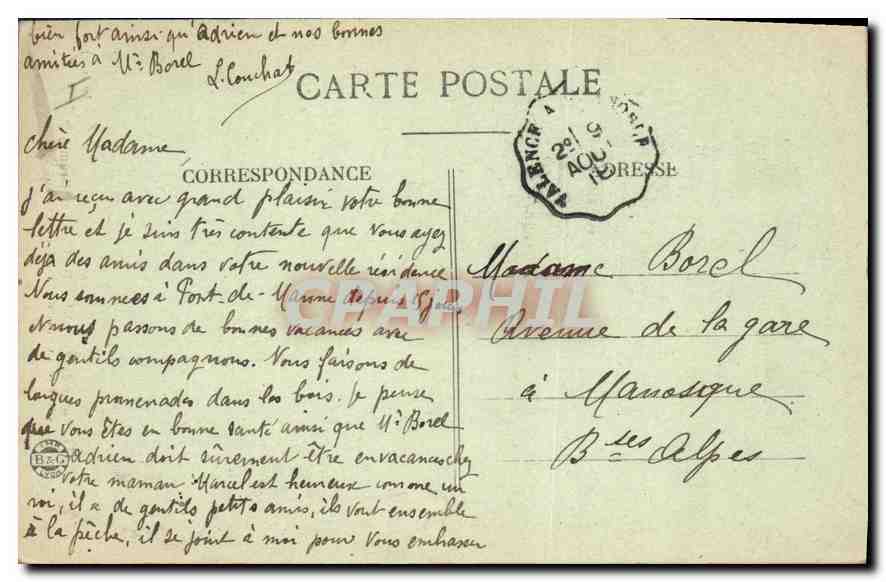 bien fort ainsi qu'Adrien et nos bonnes
amitiés à Mr Borel
L. Couchat
CARTE POSTALE
VALENCE A
AOU
Chère Madame
CORRESPONDANCE
DRESSE
J'ai reçu avec grand plaisir votre bonne
lettre et je suis très contente que vous ayez
déja des amis dans votre nouvelle résidence
Nous sommes à Port-de-Manne depuis
nous passons de bonnes vacances avec
de gentils compagnons. Nous faisons de
longues promenades dans les bois. Je pense
que vous êtes en bonne santé ainsi que Mr Borel
Adrien doit sûrement être en vacances chez
votre maman Marcel est heureux comme un
roi, il a de gentils petits amis, ils vont ensemble
à la pêche, il se joint à moi pour vous embrasser
B & G
LYON
Madame Borel
Avenue de la gare
à Manosque
Bses Alpes
CPAPHIL